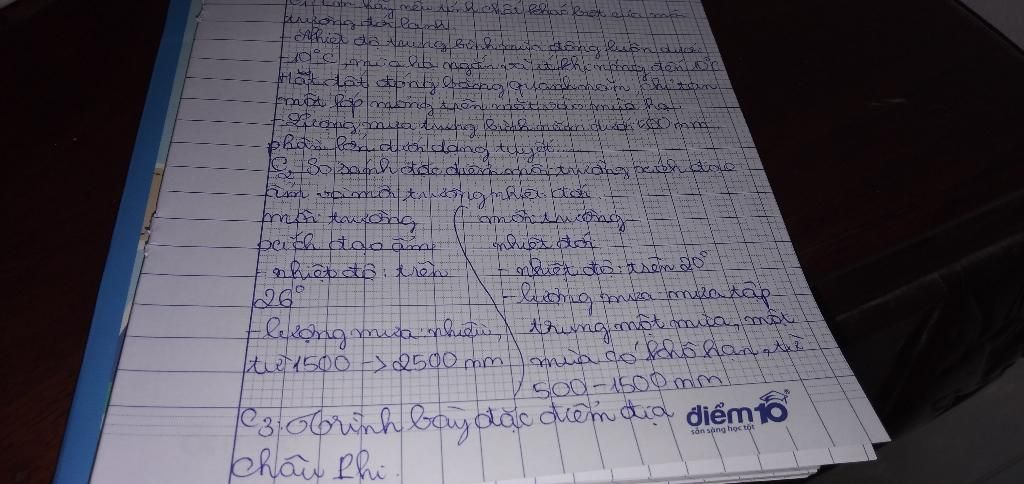 C1: Em hãy nêu tính chất khắc liệt của môi
trường đới lạnh
- Nhiệt độ trung bình mùa đông luôn dưới
-10°C, mùa hạ ngắn, ít khi nóng đến 10°C
Mặt đất đóng băng quanh năm chỉ tan
một lớp mỏng trên mặt vào mùa hạ
- Lượng mưa trung bình năm dưới 500 mm
phần lớn dưới dạng tuyết
C2 So sánh đặc điểm môi trường xích đạo
ẩm và môi trường nhiệt đới
môi trường
xích đạo ẩm
- nhiệt độ: trên
26°
- lượng mưa nhiều,
từ 1500 -> 2500 mm
môi trường
nhiệt đới
- nhiệt độ: trên 20°
- lượng mưa mưa tập
trung một mùa, một
mùa có khô hạn, từ
500-1500mm
C3: Trình bày đặc điểm địa
châu Phi.
điểm10
sẵn sàng học tốt